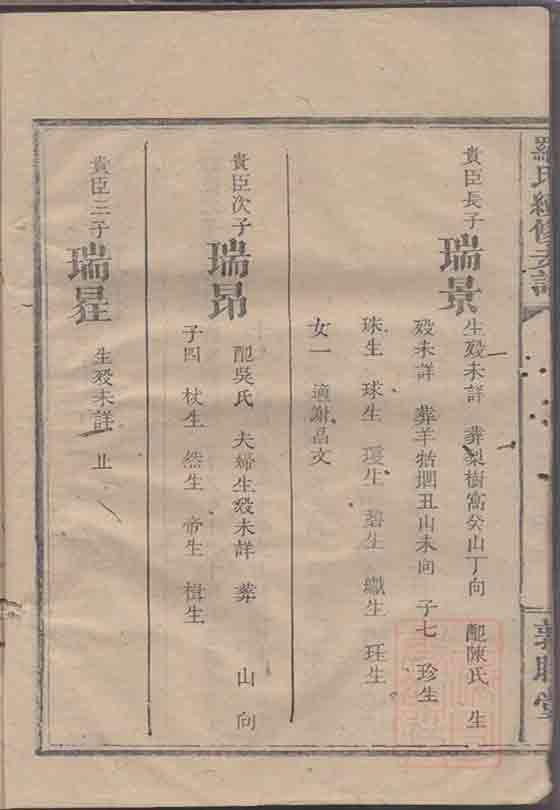 羅氏續修支譜
敦睦堂
貴臣長子
瑞景
生歿未詳 葬梨樹窩癸山丁向 配陳氏 生
歿未詳 葬羊牯𡉏丑山未向 子七 珍生
珠生 球生 環生 碧生 繼生 玨生
女一 適謝昌文
貴臣次子
瑞昂
配吳氏 夫婦生歿未詳 葬 山 向
子四 杖生 然生 帝生 楫生
貴臣三子
瑞星
生歿未詳 止